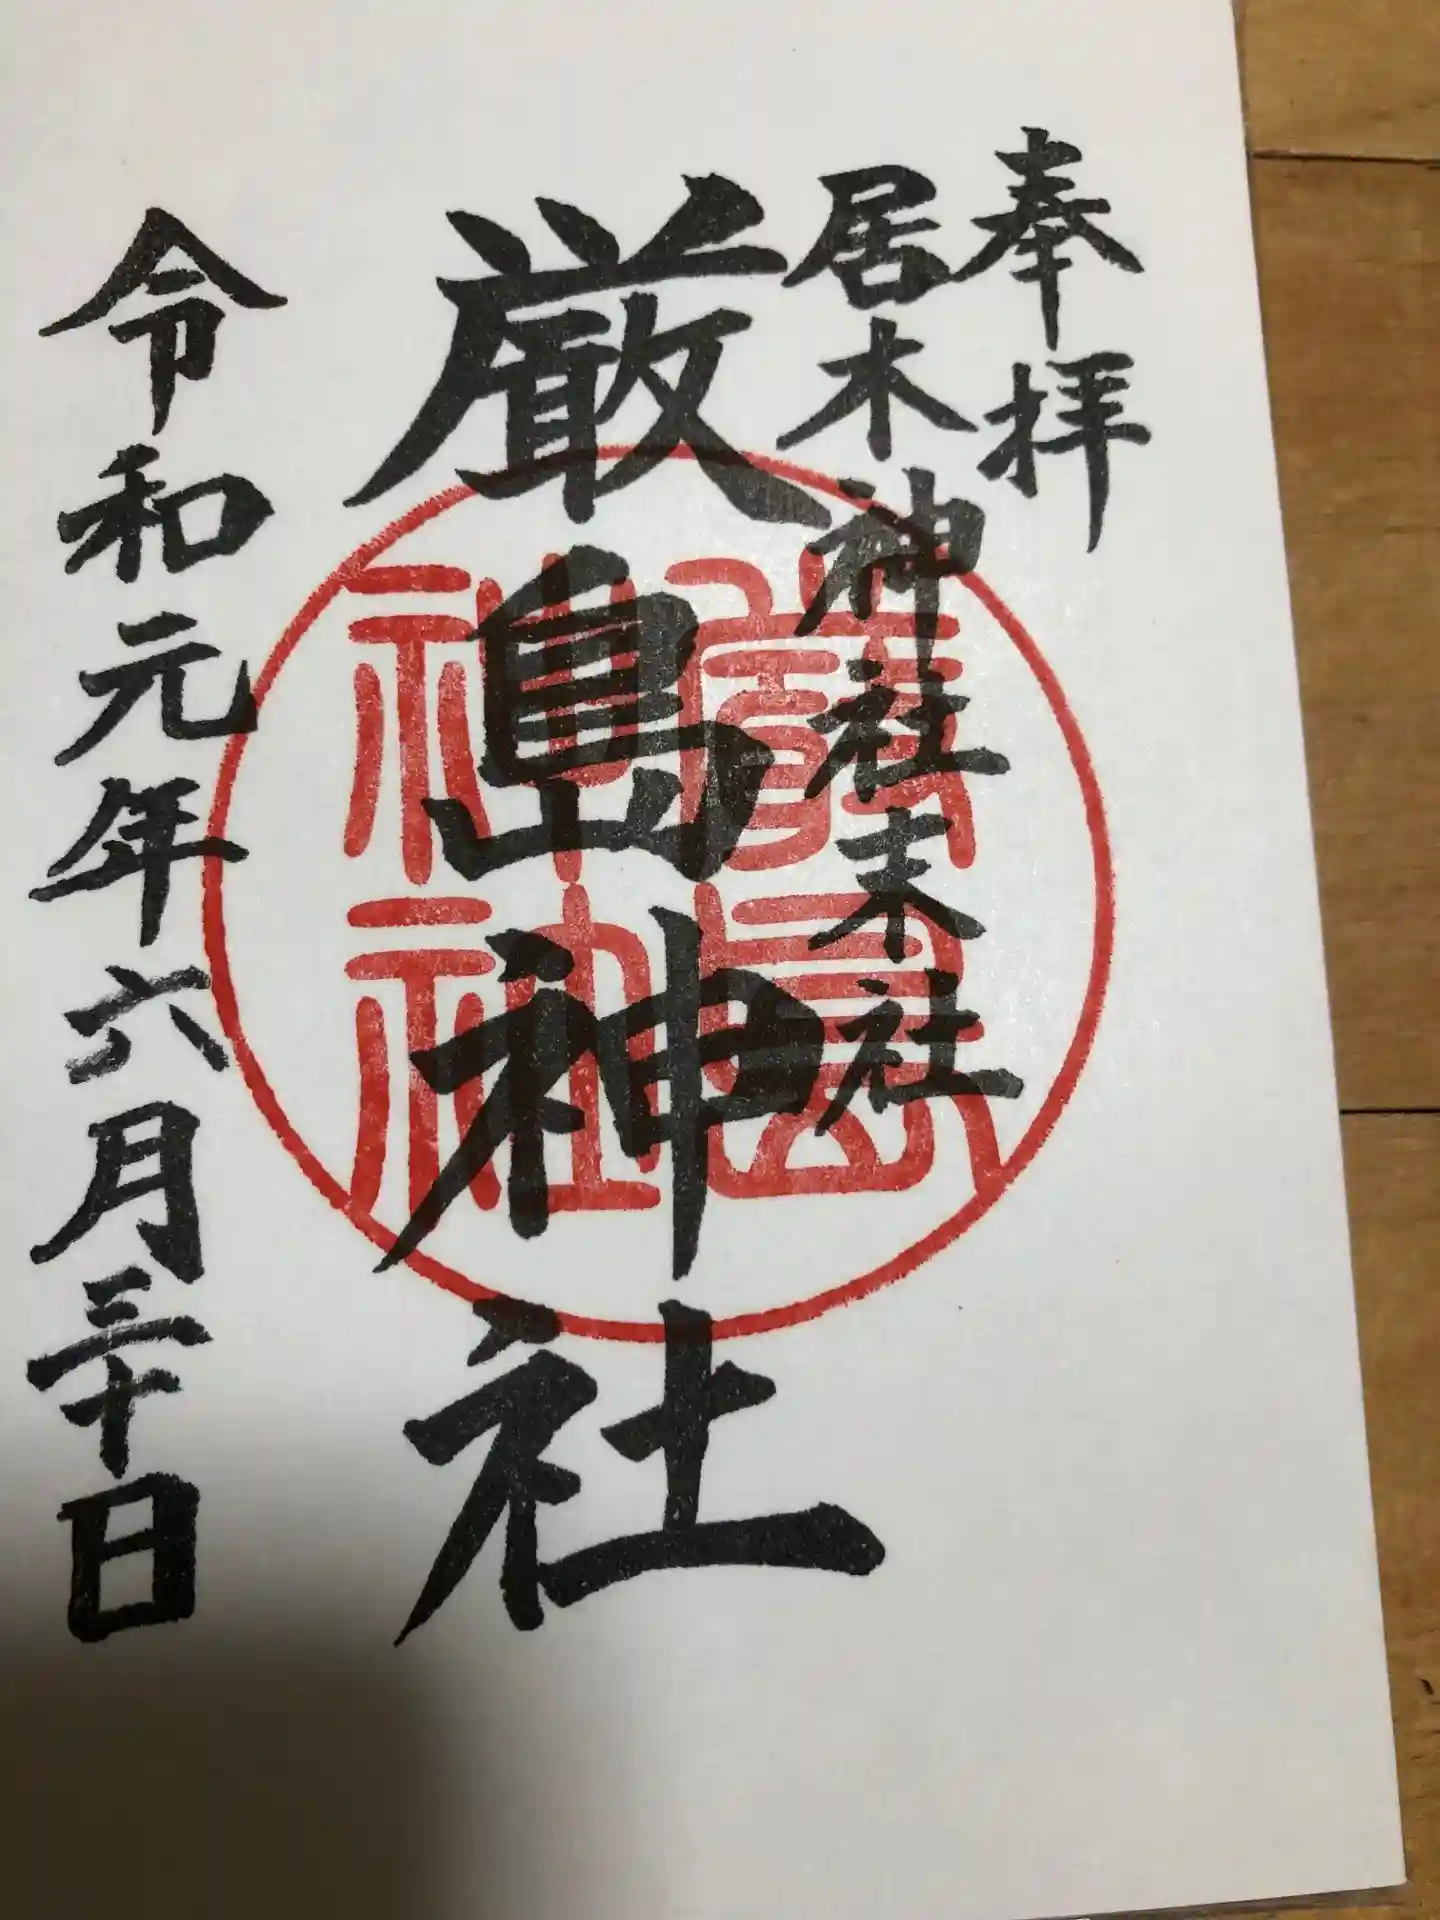 奉拝
居木神社末社
厳島神社
厳島神社
令和元年六月三十日